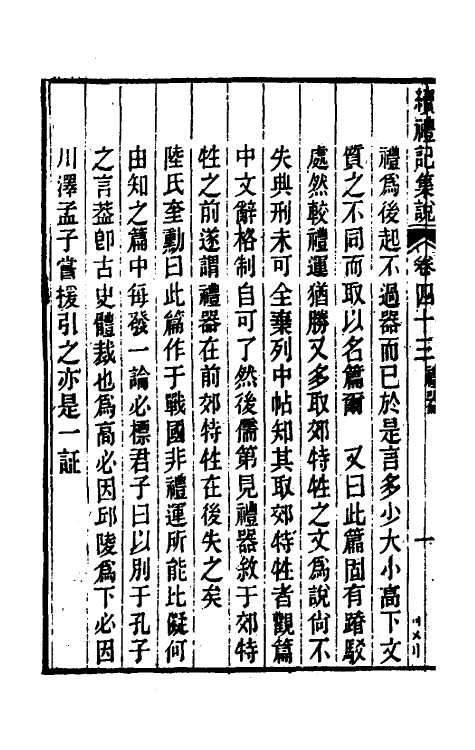 續禮記集說 卷四十三 禮器 十
禮爲後起不過器而已於是言多少大小高下文
質之不同而取以名篇爾 又曰此篇固有踳駁
處然較禮運猶勝又多取郊特牲之文爲說尙不
失典刑未可全棄列中帖知其取郊特牲者觀篇
中文辭格制自可了然後儒第見禮器敘于郊特
牲之前遂謂禮器在前郊特牲在後失之矣
陸氏奎勳曰此篇作于戰國非禮運所能比儗何
由知之篇中每發一論必標君子曰以別于孔子
之言葢卽古史體裁也爲高必因邱陵爲下必因
川澤孟子嘗援引之亦是一証